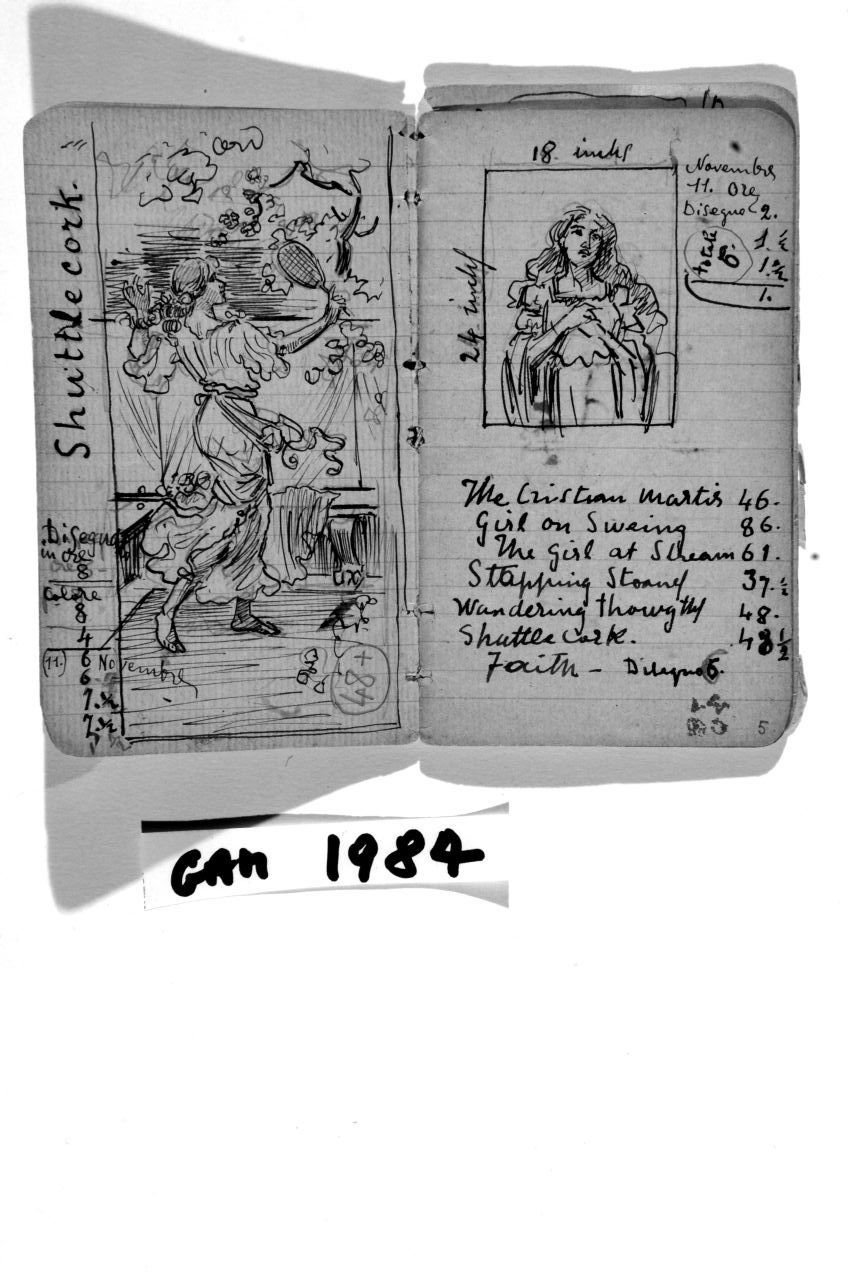 Shuttlecork.
Disegno
in ore
8
colore
8
4
(11.) 6 Novembre
6
7.½
7.½
48+
18 inchs
24 inchs
Novembre
11. Ore
Disegno 2.
1 ½
1 ½
1.
totale 6.
The Cristian Martis 46.
Girl on Sweing 86.
The Girl at Stream 61.
Stapping Stoans 37.½
Wandering thowgths 48.
Shuttlecork. 48½
Faith – Disegno 6.
5
GAM 1984